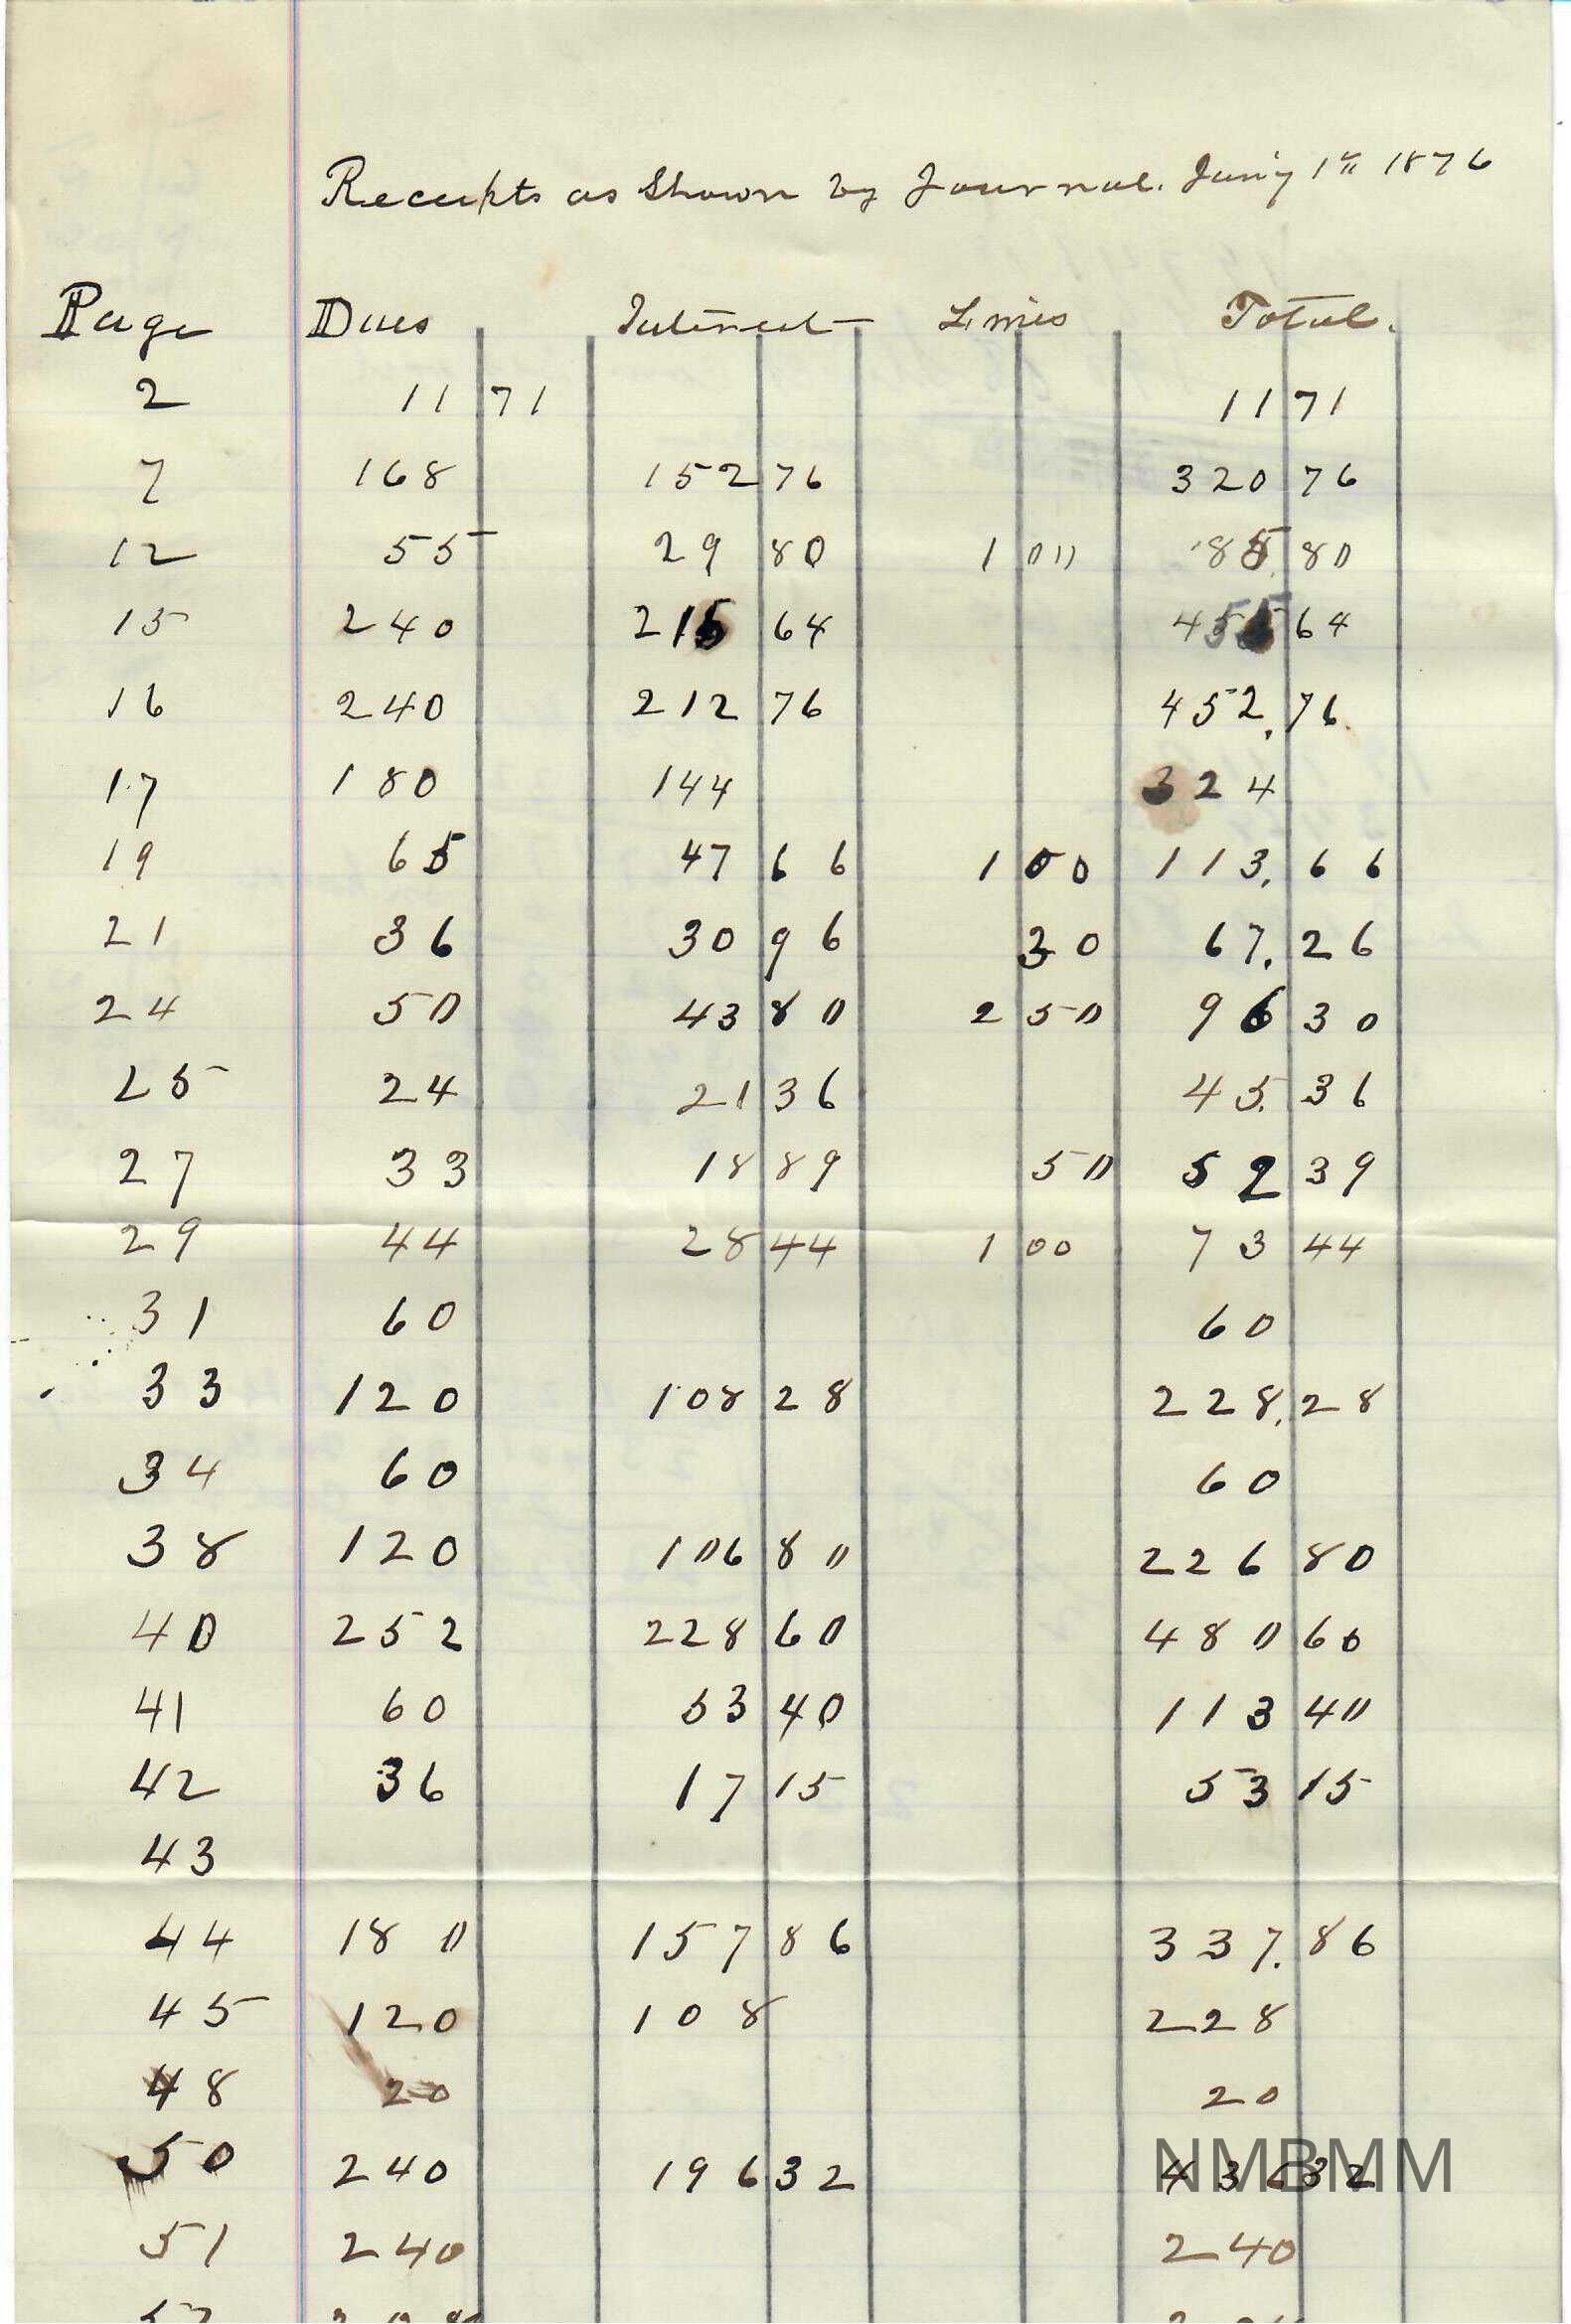 Receipts as Shown by Journal. Jany 1st 1876
Page Dues Interest Fines Total.
2 11 71 11 71
7 168 152 76 320 76
12 55 29 80 1 00 85. 80
15 240 215 64 455 64
16 240 212 76 452. 76
17 180 144 324
19 65 47 66 1 00 113. 66
21 36 30 96 30 67. 26
24 50 43 80 2 50 96 30
25 24 21 36 45. 36
27 33 18 89 50 52 39
29 44 28 44 1 00 73 44
31 60 60
33 120 108 28 228. 28
34 60 60
38 120 106 80 226 80
40 252 228 60 480 60
41 60 53 40 113 40
42 36 17 15 53 15
43
44 180 157 86 337. 86
45 120 108 228
48 20 20
50 240 196 32 436 32
NMBMM
51 240 240